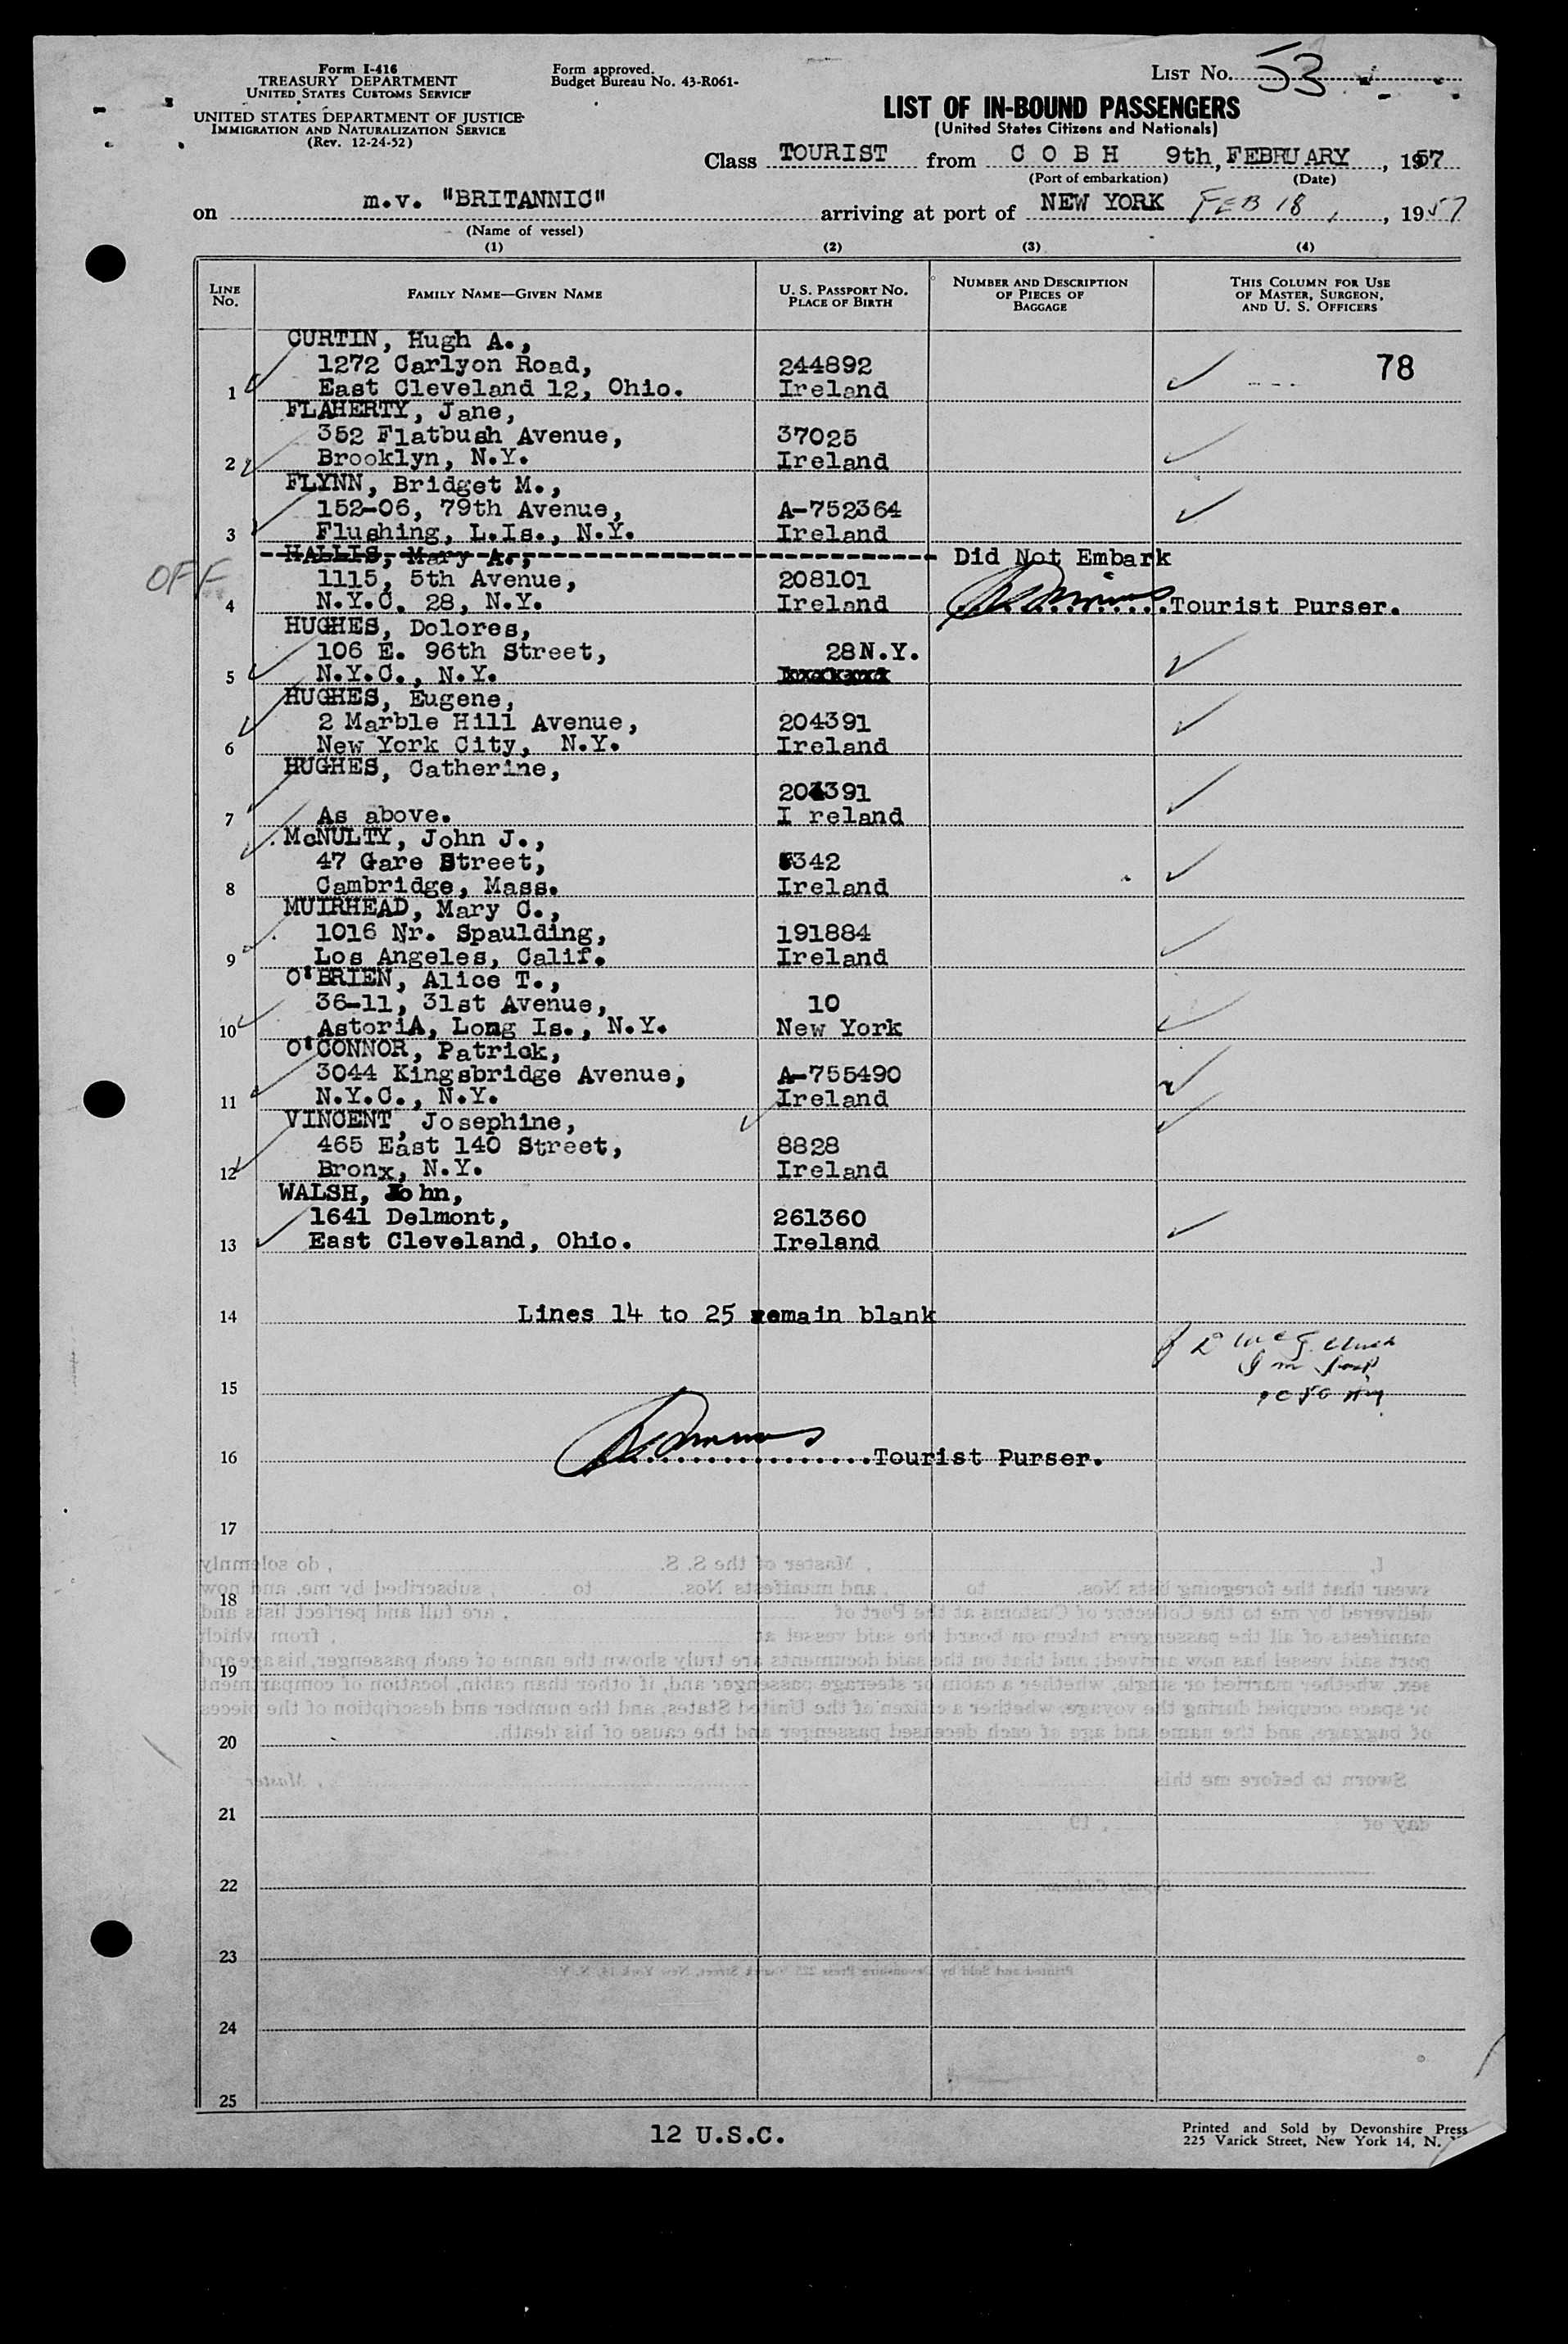 Form I-416
TREASURY DEPARTMENT
UNITED STATES CUSTOMS SERVICE
UNITED STATES DEPARTMENT OF JUSTICE
IMMIGRATION AND NATURALIZATION SERVICE
(Rev. 12-24-52)
Form approved.
Budget Bureau No. 43-R061-
LIST NO. 53
LIST OF IN-BOUND PASSENGERS
(United States Citizens and Nationals)
Class TOURIST from C O B H 9th, FEBRUARY, 1957
(Port of embarkation) (Date)
on m.v. "BRITANNIC" arriving at port of NEW YORK FEB 18, 1957
(Name of vessel)
(1) (2) (3) (4)
LINE NO. FAMILY NAME—GIVEN NAME U. S. PASSPORT NO. PLACE OF BIRTH NUMBER AND DESCRIPTION OF PIECES OF BAGGAGE THIS COLUMN FOR USE OF MASTER, SURGEON, AND U. S. OFFICERS
CURTIN, Hugh A.,
1272 Carlyon Road, 244892 78
1 East Cleveland 12, Ohio. Ireland
FLAHERTY, Jane,
352 Flatbush Avenue, 37025
2 Brooklyn, N.Y. Ireland
FLYNN, Bridget M.,
152-06, 79th Avenue, A-752364
3 Flushing, L.Is., N.Y. Ireland
HALLIS, Mary A., Did Not Embark
OFF 1115, 5th Avenue, 208101
4 N.Y.C. 28, N.Y. Ireland Tourist Purser.
HUGHES, Dolores,
106 E. 96th Street, 28N.Y.
5 N.Y.C., N.Y.
HUGHES, Eugene,
2 Marble Hill Avenue, 204391
6 New York City, N.Y. Ireland
HUGHES, Catherine,
204391
7 As above. I reland
McNULTY, John J.,
47 Gare Street, 5342
8 Cambridge, Mass. Ireland
MUIRHEAD, Mary C.,
1016 Nr. Spaulding, 191884
9 Los Angeles, Calif. Ireland
O'BRIEN, Alice T.,
36-11, 31st Avenue, 10
10 AstoriA, Long Is., N.Y. New York
O'CONNOR, Patrick,
3044 Kingsbridge Avenue, A-755490
11 N.Y.C., N.Y. Ireland
VINCENT, Josephine,
465 East 140 Street, 8828
12 Bronx, N.Y. Ireland
WALSH, John,
1641 Delmont, 261360
13 East Cleveland, Ohio. Ireland
14 Lines 14 to 25 remain blank
15
16 Tourist Purser.
17
18
19
20
21
22
23
24
25
12 U.S.C.
Printed and Sold by Devonshire Press
225 Varick Street, New York 14, N.